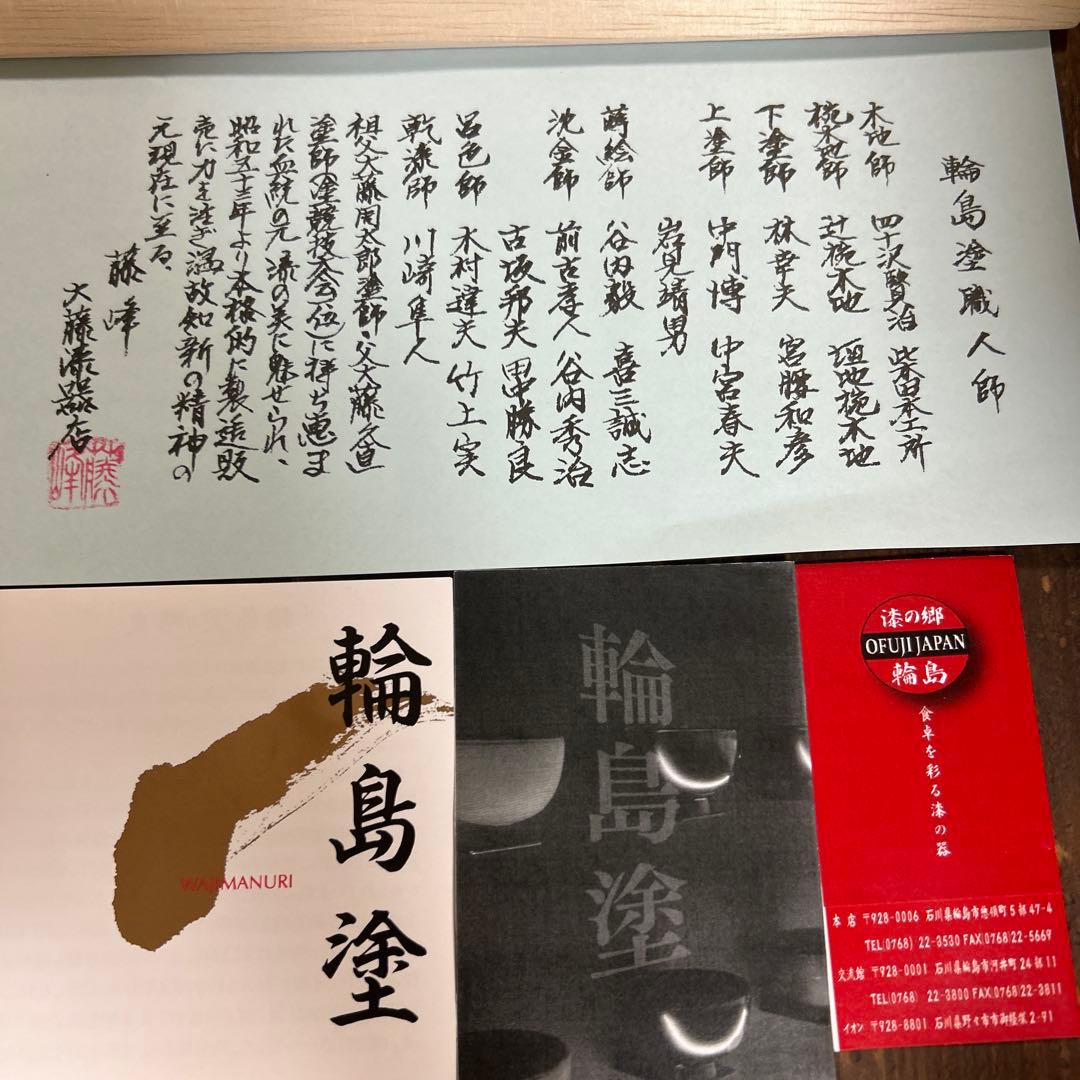 輪島塗職人師
木地師 四十沢賢治 柴田木工所
椀木地師 辻椀木地 垣地椀木地
下塗師 林幸夫 宮腰和彦
上塗師 中門博 中宮春夫
岩見靖男
蒔絵師 谷内毅 喜三誠志
沈金師 前古孝人 谷内秀治
古坂邦夫 田中勝良
呂色師 木村達夫 竹上実
乾漆師 川崎隼人
祖父大藤周太郎塗師・父大藤久直
塗師(塗競技会一位)に禅ち恵ま
れた血統の元漆の美に魅せられ、
昭和五十三年より本格的に製造販
売に力を注ぎ温故知新の精神の
元現在に至る、
藤峰
大藤漆器店
藤峰
輪島塗
WAJIMANURI
輪島塗
漆の郷
OFUJI JAPAN
輪島
食卓を彩る漆の器
本店 〒928-0006 石川県輪島市惣領町5部47-4
TEL(0768) 22-3530 FAX(0768)22-5669
交流館 〒928-0001 石川県輪島市河井町24部11
TEL(0768) 22-3800 FAX(0768)22-3811
イオン 〒928-8801 石川県野々市市御経塚2-91